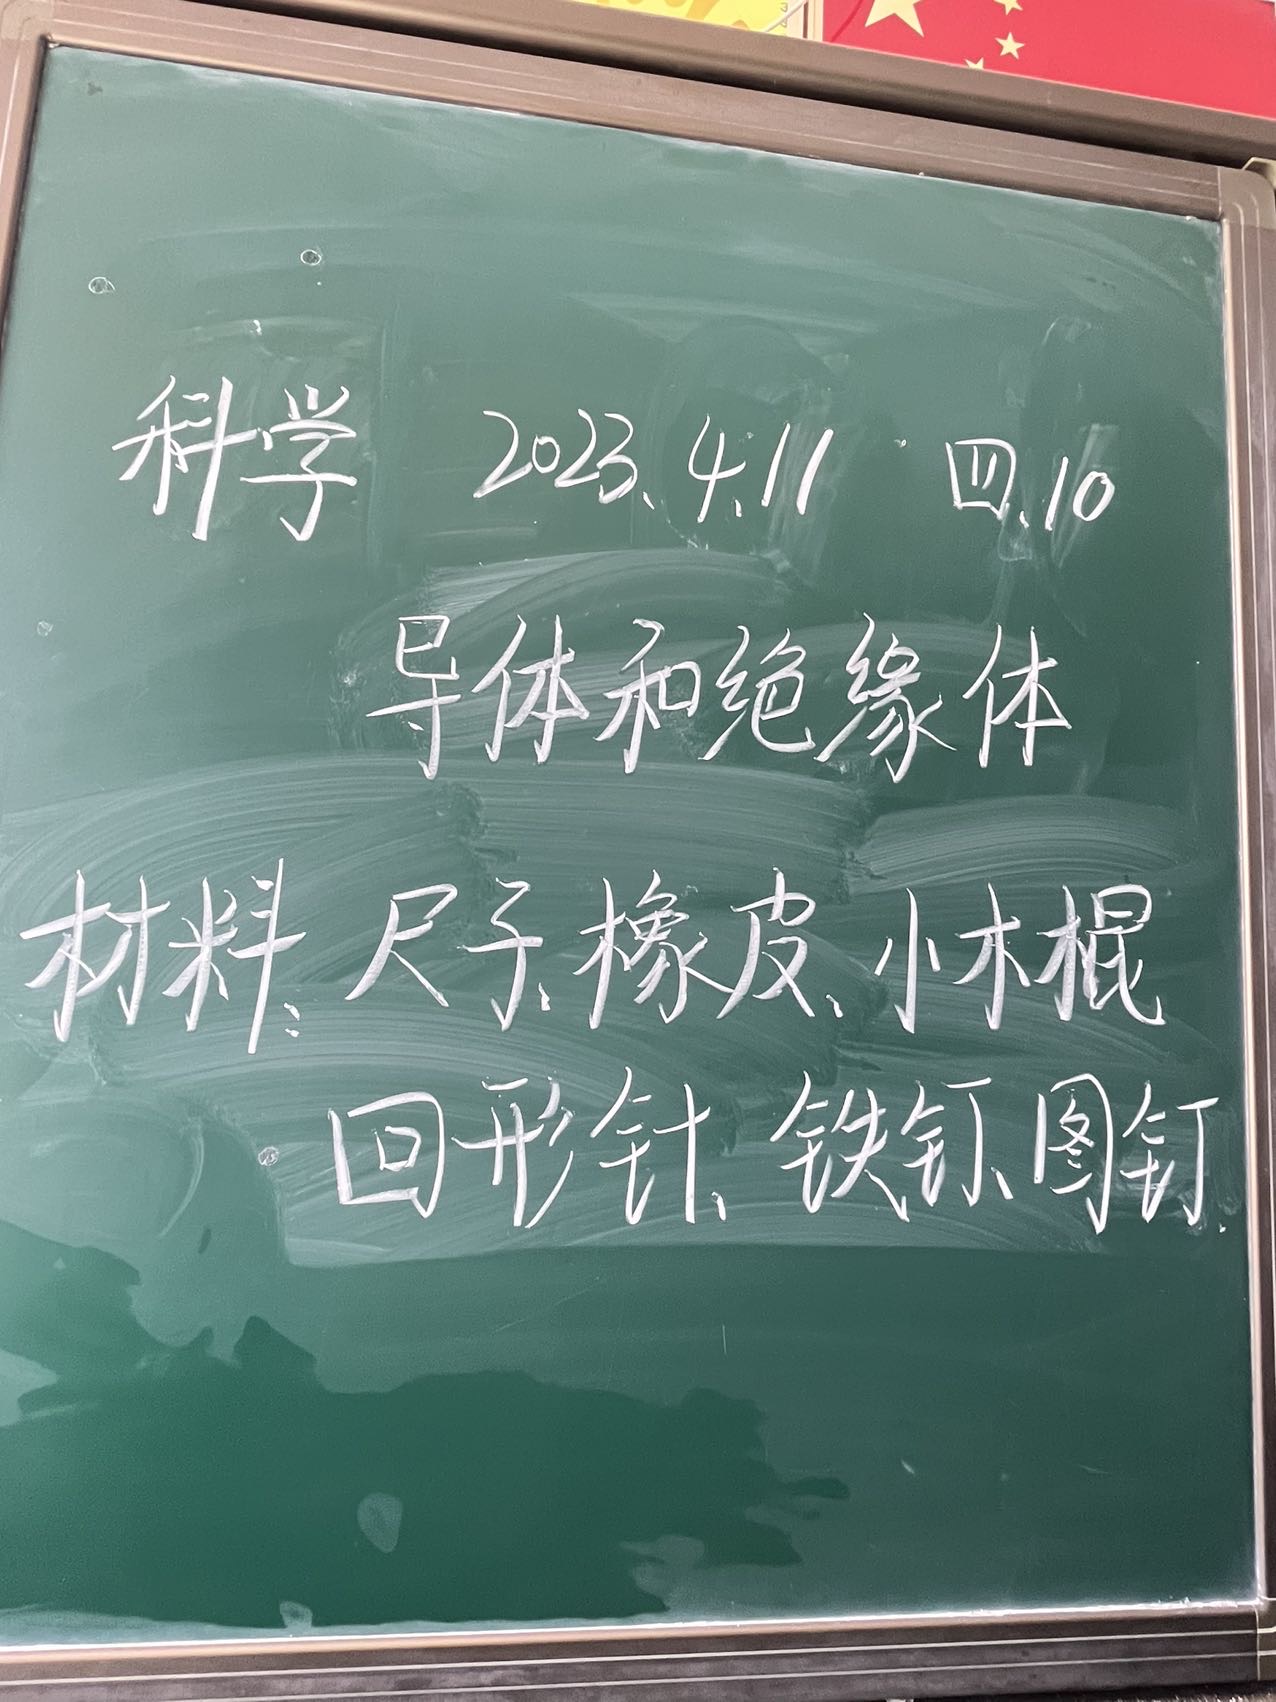 科学 2023.4.11 四.10
导体和绝缘体
材料：尺子、橡皮、小木棍
回形针、铁钉、图钉.